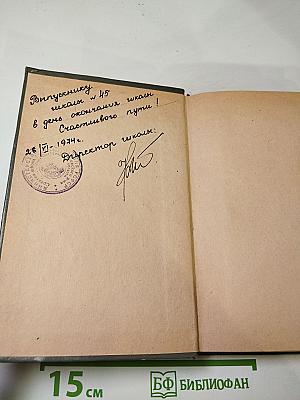 Выпускнику
школы № 45
в день окончания школы
Счастливого пути!
28/VI-1974г.
Директор школы:
15 см
БФ БИБЛИОФАН